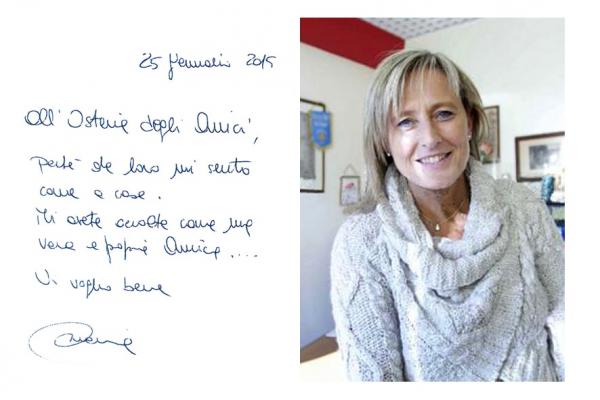 25 Gennaio 2015
All'Osteria degli Amici,
perché da loro mi sento
come a casa.
Mi avete accolta come una
vera e propria Amica ....
Vi voglio bene